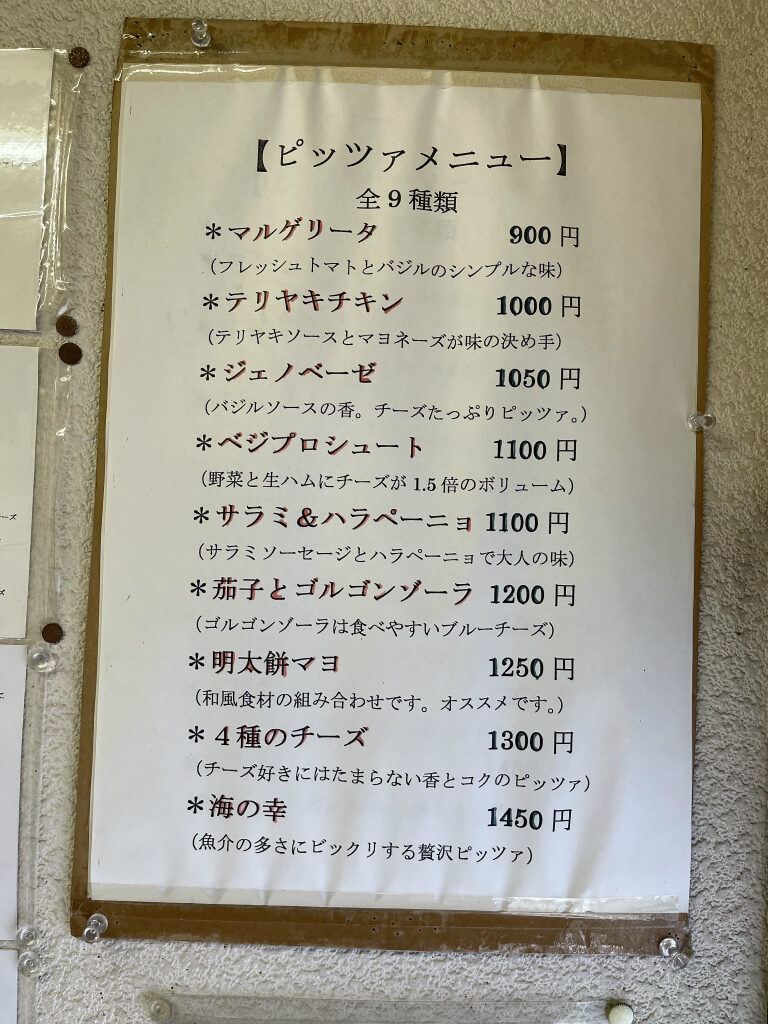 【ピッツァメニュー】
全9種類
＊マルゲリータ 900 円
（フレッシュトマトとバジルのシンプルな味）
＊テリヤキチキン 1000 円
（テリヤキソースとマヨネーズが味の決め手）
＊ジェノベーゼ 1050 円
（バジルソースの香。チーズたっぷりピッツァ。）
＊ベジプロシュート 1100 円
（野菜と生ハムにチーズが 1.5 倍のボリューム）
＊サラミ＆ハラペーニョ 1100 円
（サラミソーセージとハラペーニョで大人の味）
＊茄子とゴルゴンゾーラ 1200 円
（ゴルゴンゾーラは食べやすいブルーチーズ）
＊明太餅マヨ 1250 円
（和風食材の組み合わせです。オススメです。）
＊４種のチーズ 1300 円
（チーズ好きにはたまらない香とコクのピッツァ）
＊海の幸 1450 円
（魚介の多さにビックリする贅沢ピッツァ）